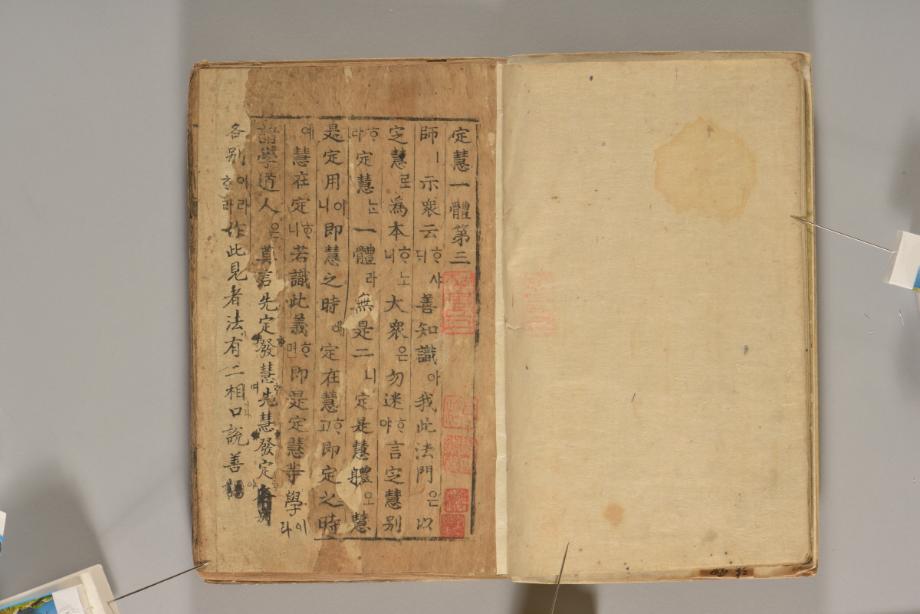 定慧一體第三
師ㅣ示衆云ᄒᆞ샤ᄃᆡ善知識아我此法門은以
定慧로爲本ᄒᆞ노니大衆은勿迷ᄒᆞ야言定慧別
ᄒᆞ라定慧ᄂᆞᆫ一體라無是二니定是慧體오慧
是定用이니即慧之時예定在慧ᄒᆞ고即定之時
예慧在定ᄒᆞ니若識此義ᄒᆞ면即是定慧等學이라
諸學道人은莫言先定發慧先慧發定
各別이라ᄒᆞ라作此見者法有二相口說善